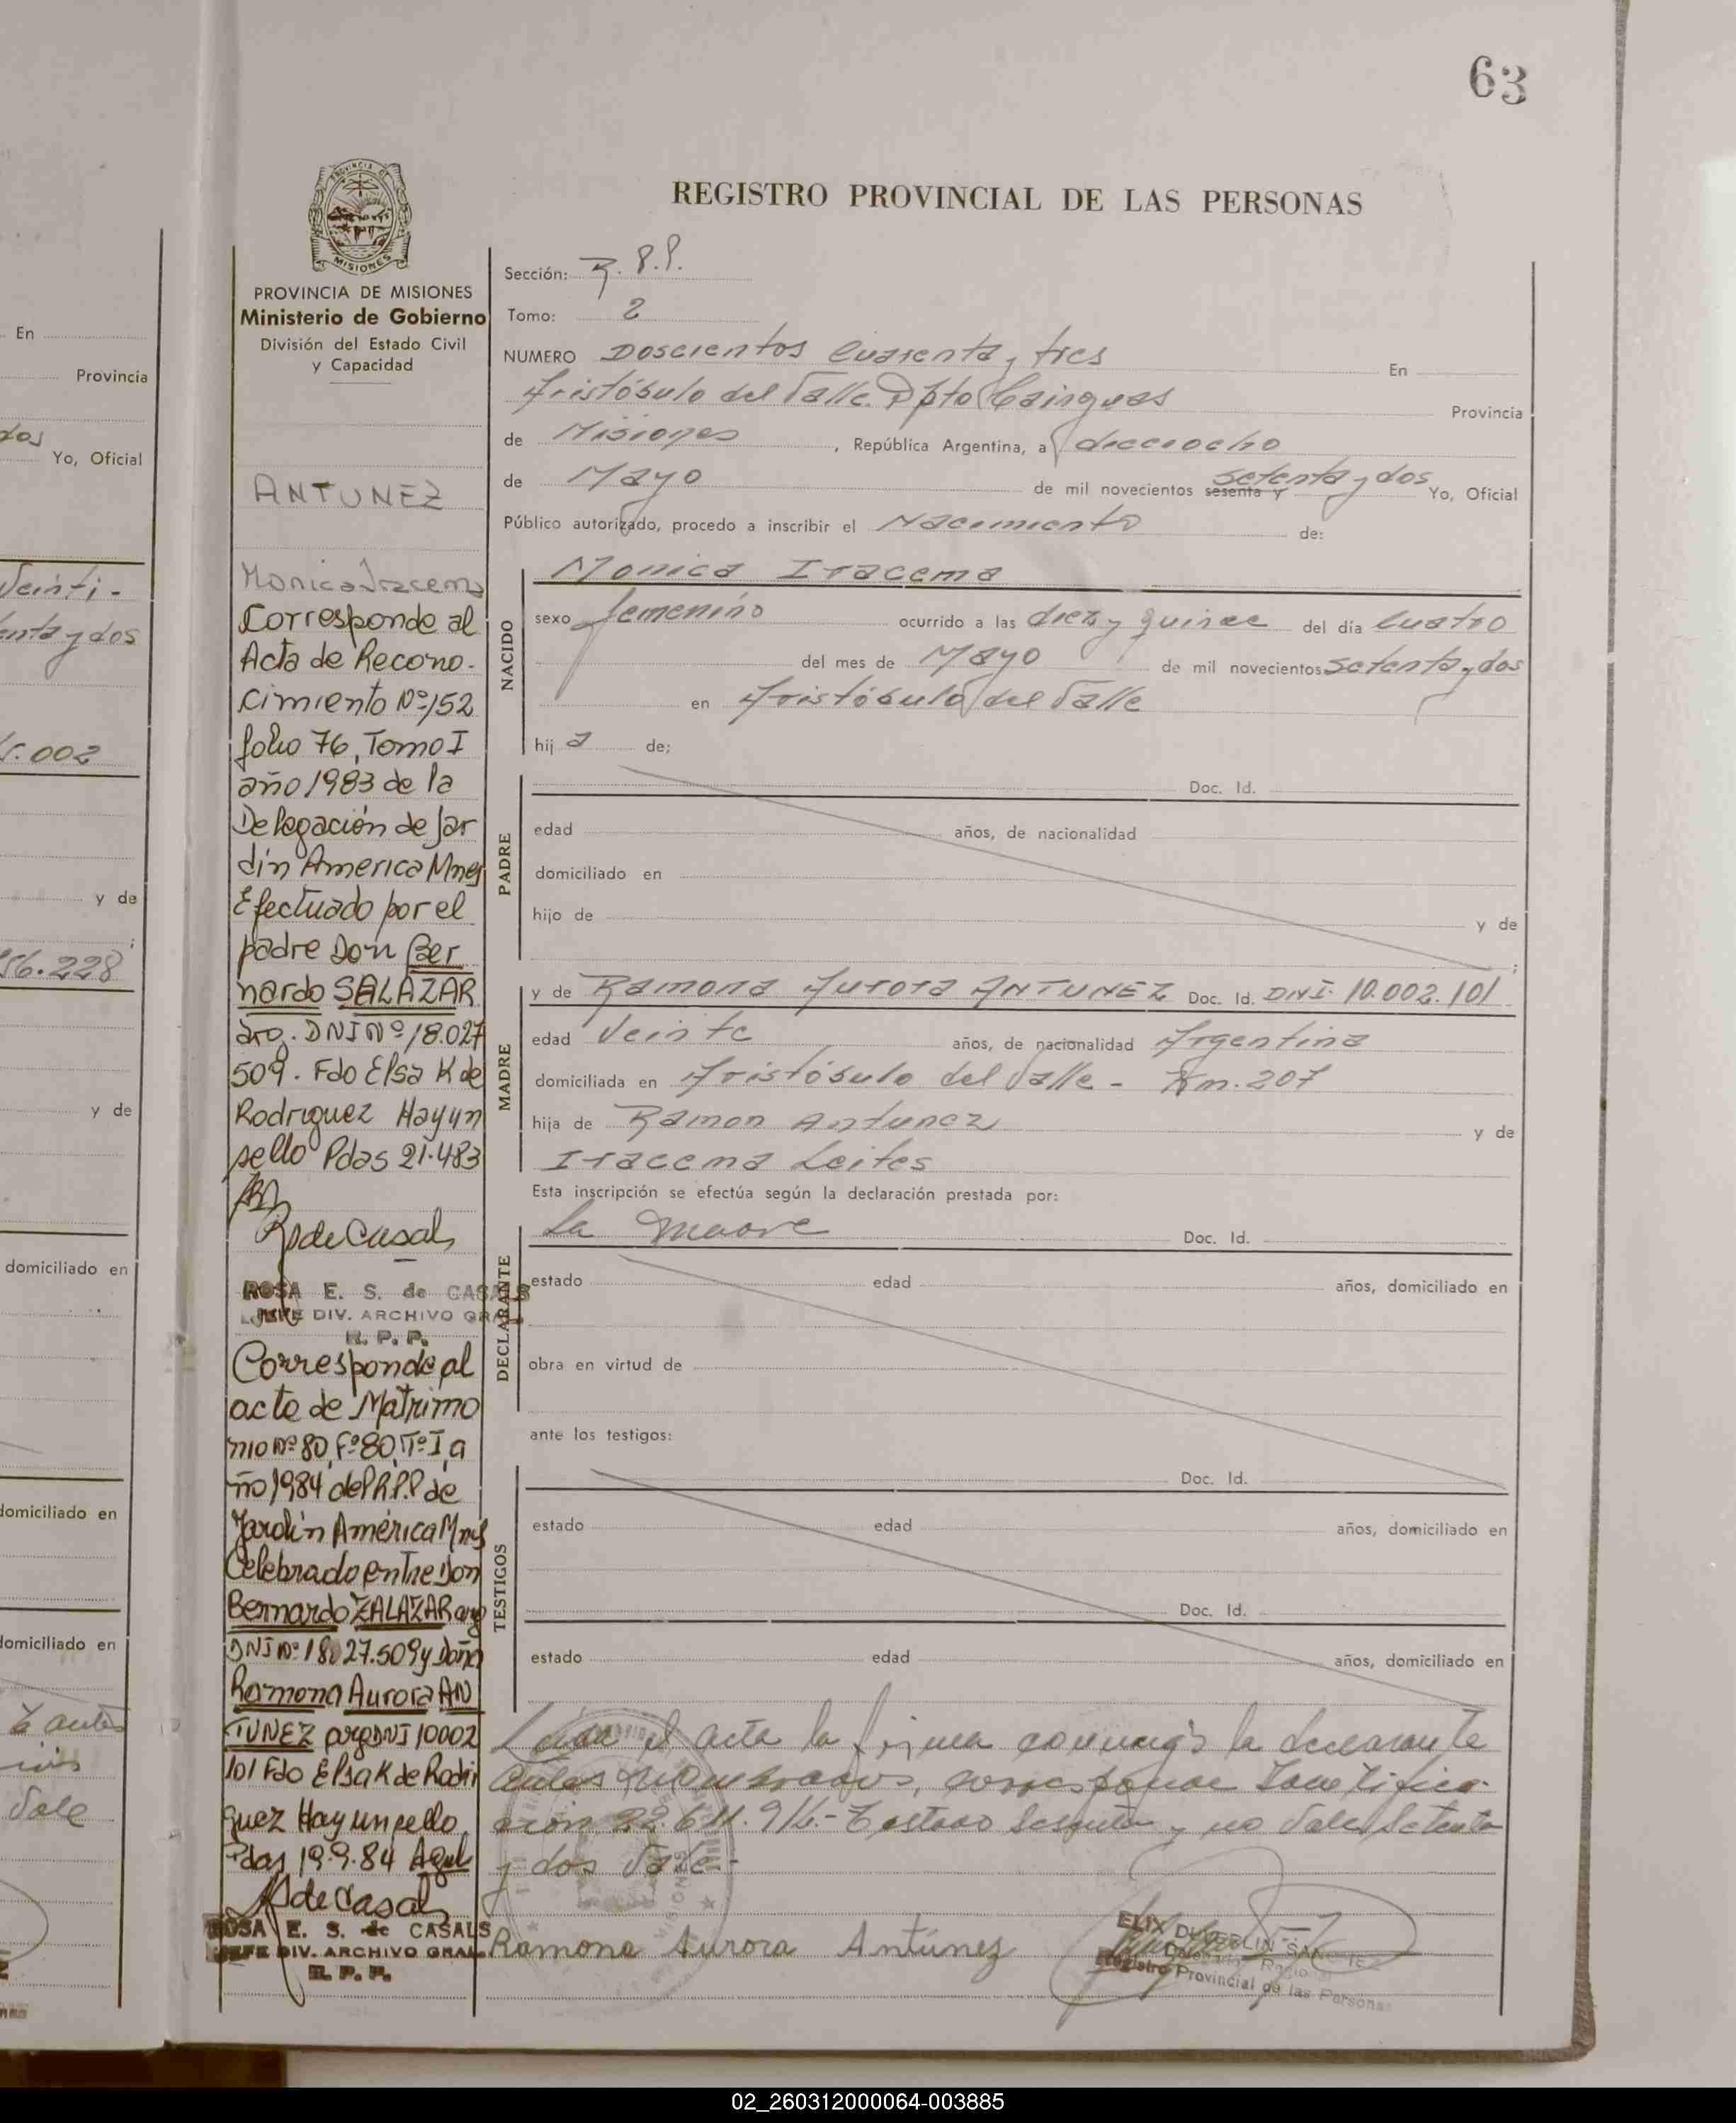 63
REGISTRO PROVINCIAL DE LAS PERSONAS
PROVINCIA DE MISIONES
Ministerio de Gobierno
División del Estado Civil
y Capacidad
ANTUNEZ
Monica Iracema
Corresponde al
Acta de Recono-
cimiento Nº 152
folio 76, Tomo I
año 1983 de la
Delegación de Jar
din America Mnes
Efectuado por el
padre Don Ber
nardo SALAZAR
arg. DNI Nº 18.027
509. Fdo Elsa K de
Rodriguez Hay un
sello Pdas 21-4-83
R de Casals
ROSA E. S. de CASALS
JEFE DIV. ARCHIVO GRAL
R. P. P.
Corresponde al
acto de Matrimo
nio Nº 80, Fº 80, Tº I, a
ño 1984 del R.P.P de
Jardín América Mnes
Celebrado entre Don
Bernardo ZALAZAR arg
DNI Nº 18027.509 y Doña
Ramona Aurora AN
TUNEZ arg DNI 10002
101 Fdo Elsa K de Rodri
guez Hay un sello
Pdas 19.9.84
R de Casals
ROSA E. S. de CASALS
JEFE DIV. ARCHIVO GRAL
R. P. P.
Sección: R.P.P.
Tomo: 2
NUMERO Doscientos Cuarenta y tres En
Aristóbulo del Valle Dpto Cainguas Provincia
de Misiones, República Argentina, a dieciocho
de Mayo de mil novecientos sesenta y setenta y dos Yo, Oficial
Público autorizado, procedo a inscribir el Nacimiento de:
NACIDO
Monica Iracema
sexo femenino ocurrido a las diez y quince del día cuatro
del mes de Mayo de mil novecientos setenta y dos
en Aristóbulo del Valle
hij a de;
PADRE
Doc. Id.
edad años, de nacionalidad
domiciliado en
hijo de y de
;
MADRE
y de Ramona Aurora ANTUNEZ Doc. Id. DNI. 10.002.101
edad Veinte años, de nacionalidad Argentina
domiciliada en Aristóbulo del Valle - Km. 207
hija de Ramon Antunez y de
Iracema Leites
Esta inscripción se efectúa según la declaración prestada por:
DECLARANTE
La madre Doc. Id.
estado edad años, domiciliado en
obra en virtud de
ante los testigos:
TESTIGOS
Doc. Id.
estado edad años, domiciliado en
Doc. Id.
estado edad años, domiciliado en
Leida el acta la firma conmigo la declarante
antes corresponde
Testado sesenta y no Vale Setenta
y dos Vale.-
Ramona Aurora Antúnez
Registro Provincial de las Personas
En
Provincia
dos
Yo, Oficial
Veinti-
enta y dos
.002
y de
;
56.228
y de
domiciliado en
domiciliado en
domiciliado en
Vale
02_260312000064-003885